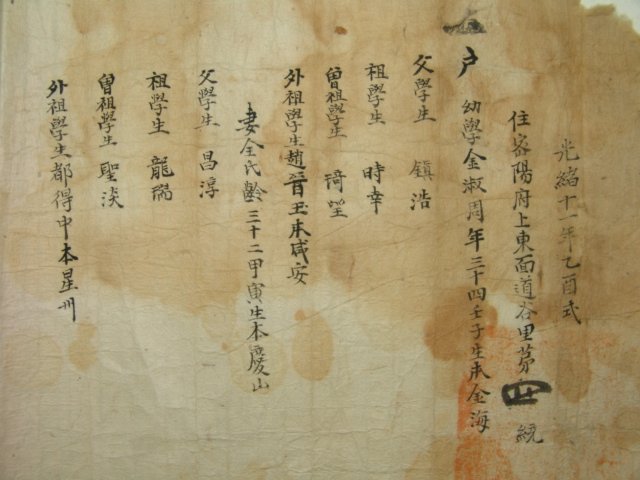 光緖十一年乙酉式
住密陽府上東面道谷里苐四統
戶 幼學金淑周年三十四壬子生本金海
父學生 鎮浩
祖學生 時幸
曾祖學生
外祖學生趙晉玉本咸安
妻全氏齡三十二甲寅生本慶山
父學生 昌淳
祖學生 龍瑞
曾祖學生 聖淡
外祖學生都得中本星州